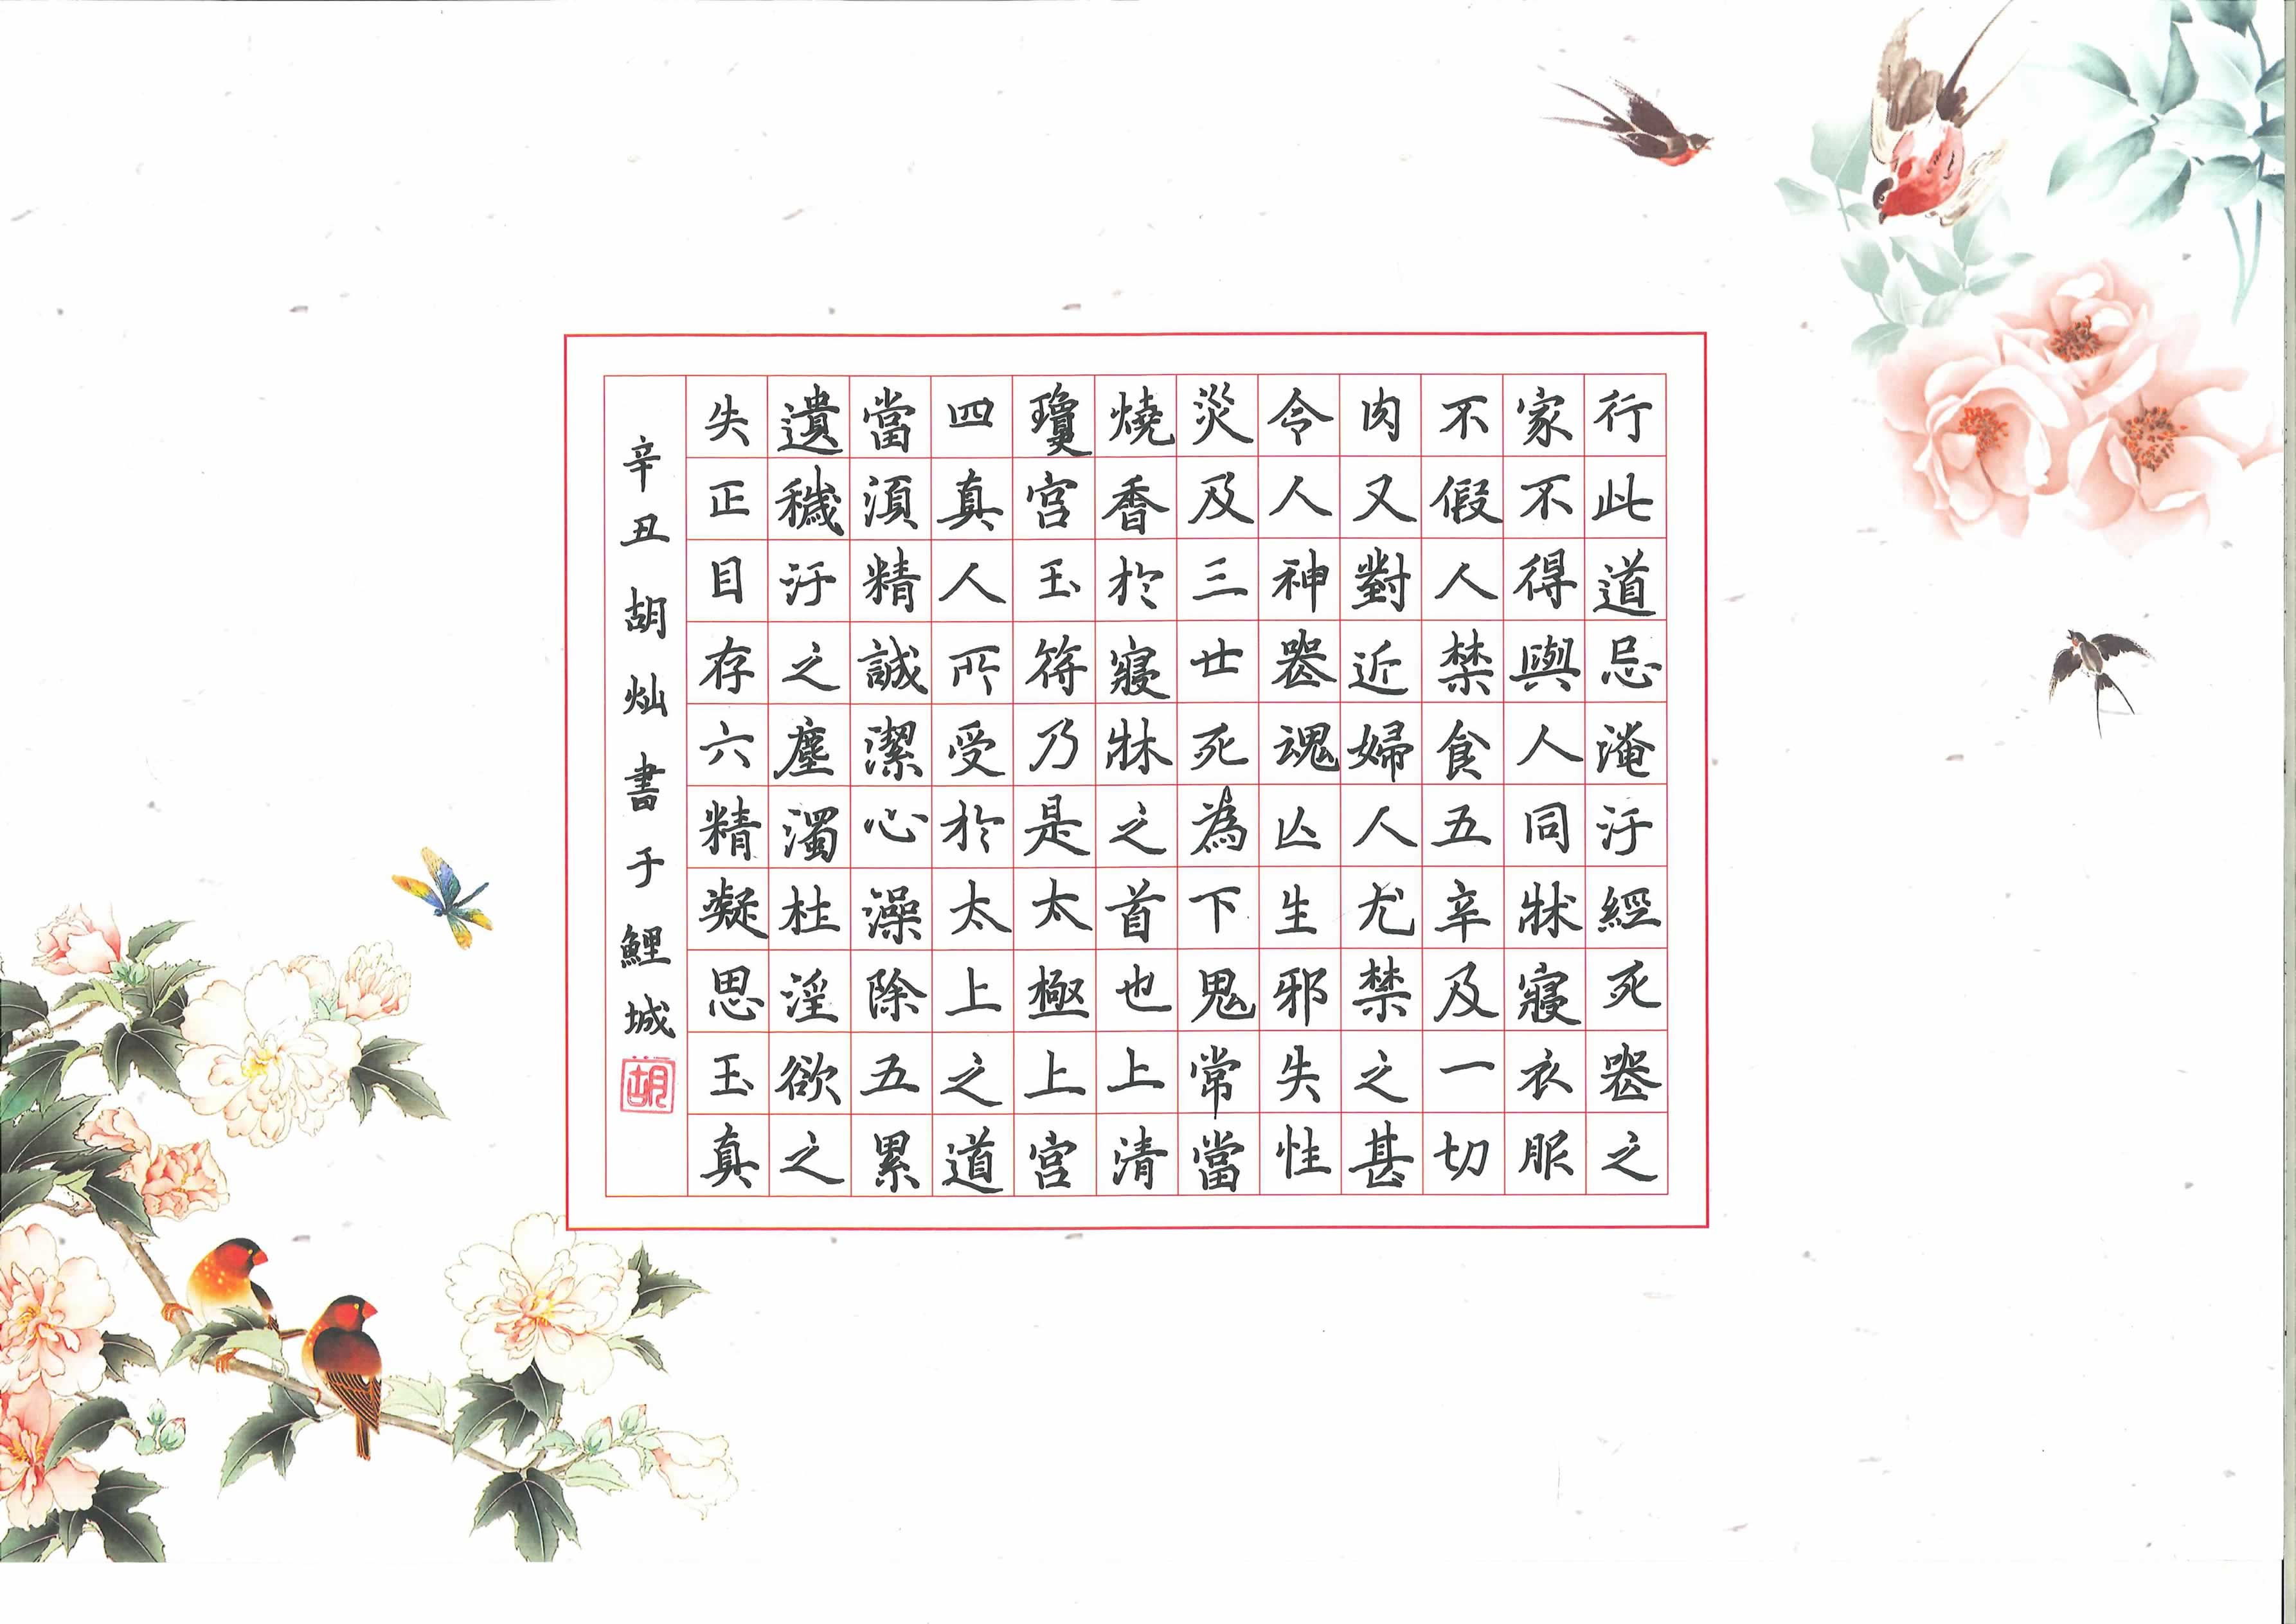 行此道忌淹汙經死喪之
家不得與人同牀寢衣服
不假人禁食五辛及一切
肉又對近婦人尤禁之甚
令人神喪魂亡生邪失性
災及三世死為下鬼常當
燒香於寢牀之首也上清
瓊宮玉符乃是太極上宮
四真人所受於太上之道
當須精誠潔心澡除五累
遺穢汙之塵濁杜淫欲之
失正目存六精凝思玉真
辛丑胡灿書于鯉城
胡